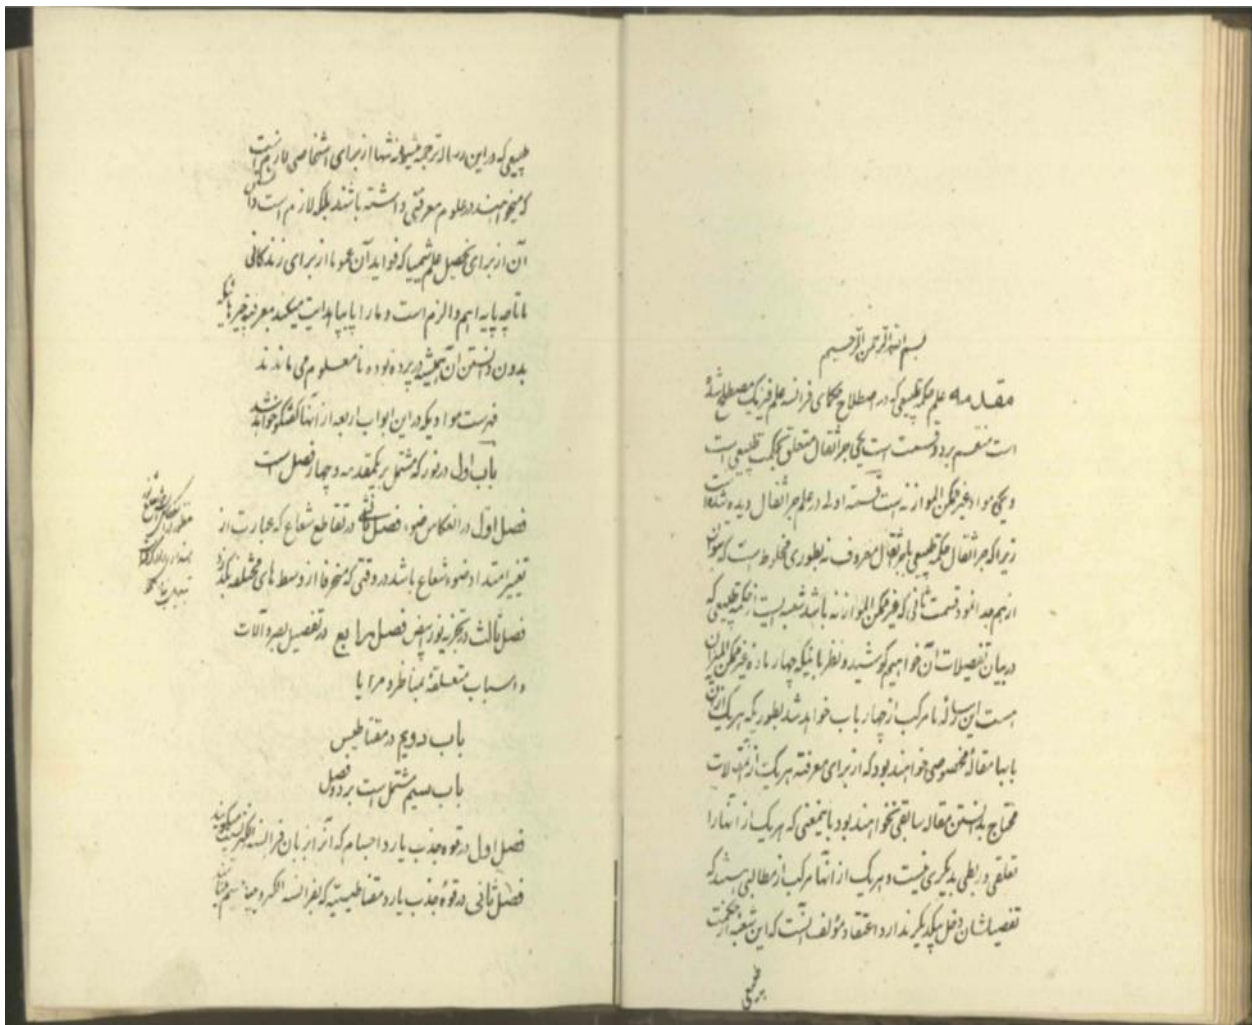 بسم الله الرحمن الرحیم
مقدمه علم حکمة طبیعی که در اصطلاح حکمای فرانسه علم فیزیک مصطلح شده
است منقسم بر دو قسمت است یکی جر اثقال متعلق بحکمت طبیعی است
و یکی مواد غیر ممکن الموازنه است قسمت اوله در علم جر اثقال دیده شده است
زیرا که جر اثقال حکمة طبیعی با جر اثقال معروف نه بطوری مخلوط است که بتوان
از هم جدا نمود قسمت ثانی که غیر ممکن الموازنه باشد شعبه ایست از حکمة طبیعی که
در بیان تفصیلات آن خواهیم کوشید و نظر باینکه چهار ماده غیر ممکن المیزان
هست این رساله ما مرکب از چهار باب خواهد شد بطوریکه هر یک ازین
بابها مقاله مخصوصی خواهند بود که از برای معرفته هر یک از مقالات
محتاج بدانستن مقاله سابقی نخواهند بود باینمعنی که هر یک از انها را
تعلقی و ربطی بدیگری نیست و هر یک از انها مرکب از مطالبی هستند که
تفصیلشان دخل بیکدیگر ندارد اعتقاد مؤلف انست که این شعبه از حکمت
طبیعی که در این رساله ترجمه میشود نه تنها از برای اشخاصی لازم است
که میخواهند در علوم معرفتی داشته باشند بلکه لازم است دانستن
آن از برای تحصیل علم شیمیا که فواید آن عموما از برای زندکانی
ما تا چه پایه اهم و الزم است و ما را پا بپا هدایت میکند بمعرفة چیزهائیکه
بدون دانستن آن همیشه در پرده بوده نامعلوم می ماندند
فهرست موادیکه در این ابواب اربعه از انها کفتکو خواهد شد
باب اول در نور که مشتمل بر یکمقدمه و چهار فصل است
فصل اول در انعکاس ضوء فصل ثانی در تقاطع شعاع که عبارت از
تغییر امتداد ضوء شعاع باشد در وقتی که منحرفا از وسط های مختلفه بگذرد
فصل ثالث در تجزیه نور ابیض فصل رابع در تفصیل بصر و آلات
و اسباب متعلقه بمناظر و مرایا
باب دویم در مقناطیس
باب سیم مشتمل است بر دو فصل
فصل اول در قوه جذب یا رد اجسام که آنرا بزبان فرانسه الکتریسیته میکویند
فصل ثانی در قوه جذب یا رد مقناطیسیته که بفرانسه الکترو